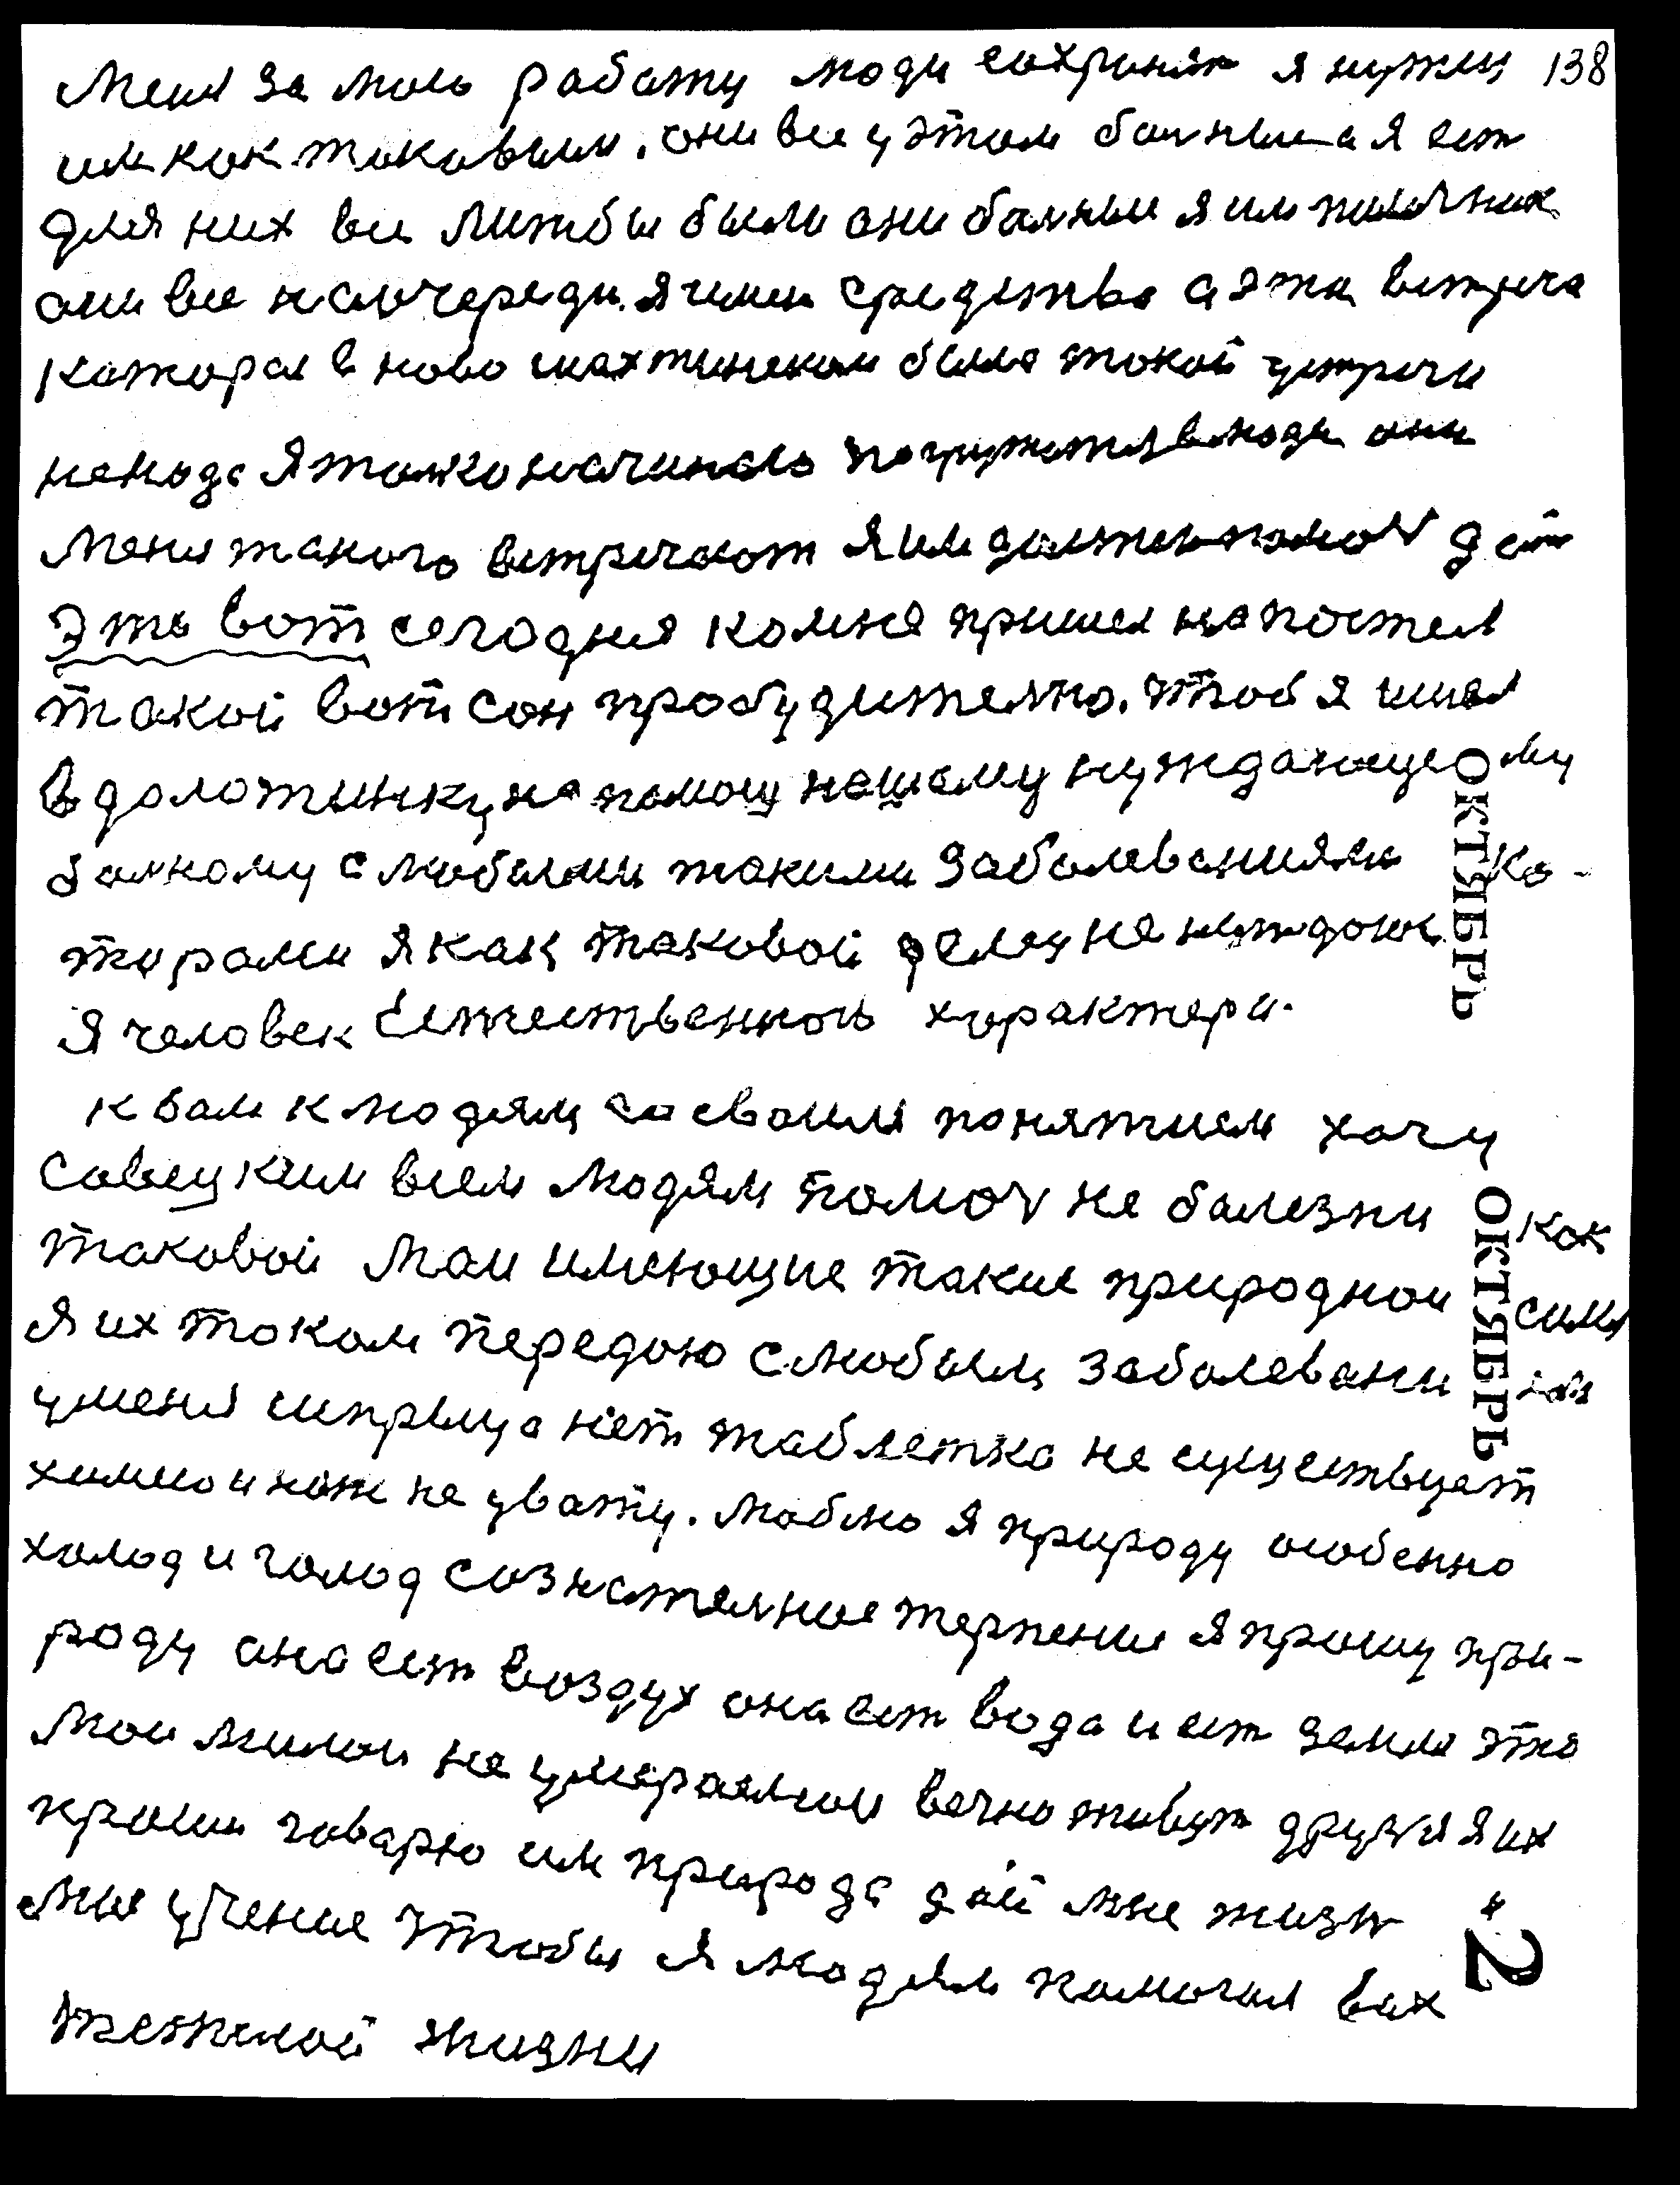 Меня за мою работу люди сохранят я нужен 138
им как таковым. они все у этом болныи а я ест
для них вси лижбы были они болныи я им помочник
они все на очереди. я чимеи средства а эта встреча
которая в ново шахтинском была такой устречи
ненада я токко начинаю погружатся в люди они
меня такого встречают я им должен помоч деи
Эта вот сегодня комне пришел на постел
такой вот сон пробудително. чтоб я шол
в долотинку на помощ нашому нуждающе му
болному с любыми такими заболеваниями ко-
торами я как таковой делец не
я человек Естественного характера.
к вам к людям со своим понятием хочу
Совецким всем людям помоч не болезни как
таковой мои имеющие такие природнои силы
я их током передою с любым заболевани ем
уменя шприца нет таблетка не существует
химию и нож не уважу. люблю я природу особенно
холод и голод сознателное терпение я прошу при-
роду она ест воздух она ест вода и ест земля это
мои милои не умераемои вечно живут друзя я их
прошу говарю им природа дай мне жизн
мне учение чтобы я людям помогал вих
тежелой жизни
ОКТЯБРЬ
ОКТЯБРЬ
2